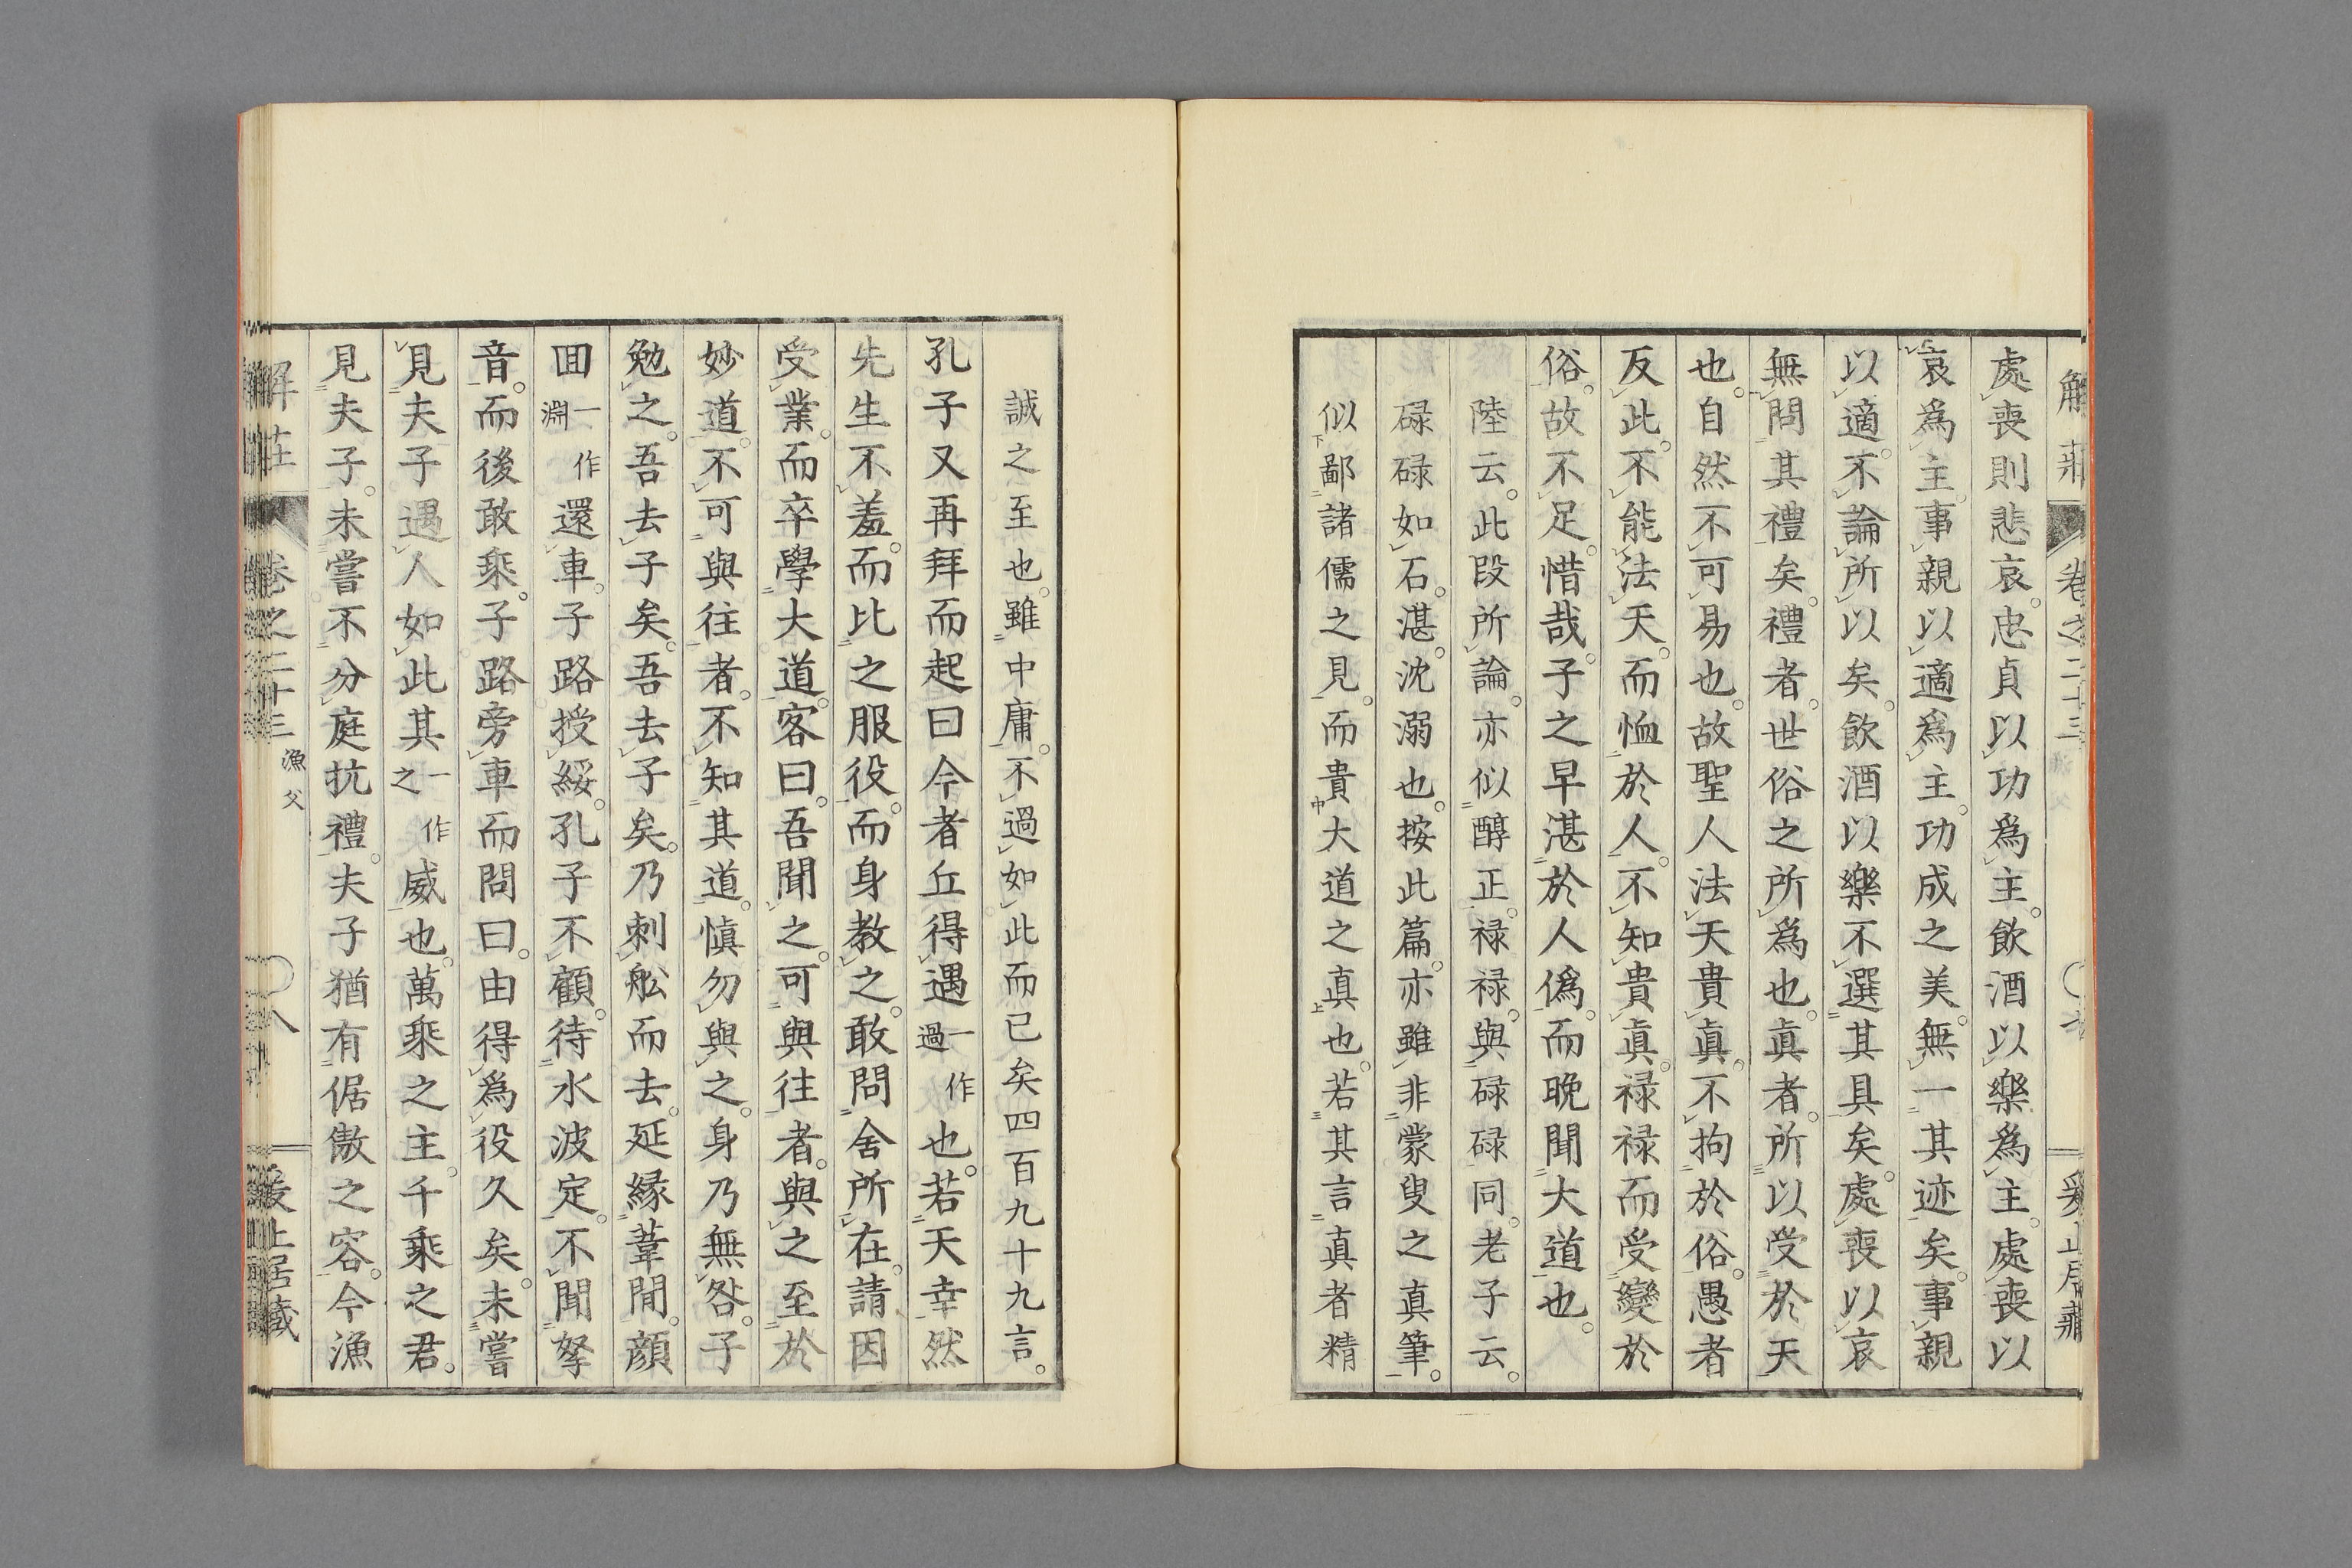 處喪則悲哀。忠貞以功爲主。飲酒以樂爲主。處喪以
哀爲主。事親以適爲主。功成之美。無一其迹矣。事親
以適。不論所以矣。飲酒以樂不選其具矣。處喪以哀
無問其禮矣。禮者。世俗之所爲也。眞者。所以受於天
也。自然不可易也。故聖人法天貴眞。不拘於俗。愚者
反此。不能法天。而恤於人。不知貴眞。禄禄而受變於
俗。故不足。惜哉。子之早湛於人僞。而晚聞大道也。
陸云。此段所論。亦似醇正。禄禄。與碌碌同。老子云。
碌碌如石。湛。沈溺也。按此篇。亦雖非蒙叟之真筆。
似鄙諸儒之見。而貴大道之真也。若其言真者精
誠之至也。雖中庸。不過如此而已矣四百九十九言。
孔子又再拜而起曰今者丘得遇一作過也。若天幸然
先生不羞。而比之服役。而身教之。敢問舍所在。請因
受業。而卒學大道。客曰。吾聞之。可與往者。與之至於
妙道。不可與往者。不知其道。慎勿與之。身乃無咎。子
勉之。吾去子矣。吾去子矣。乃刺舩而去。延緣葦閒。顔
囬一作淵還車。子路授綏。孔子不顧。待水波定。不聞拏
音。而後敢乘。子路旁車而問曰。由得爲役久矣。未嘗
見夫子遇人如此其一作之威也。萬乘之主。千乘之君。
見夫子。未嘗不分庭抗禮。夫子猶有倨傲之容。今漁
解莊 卷之二十三 漁父 〇八